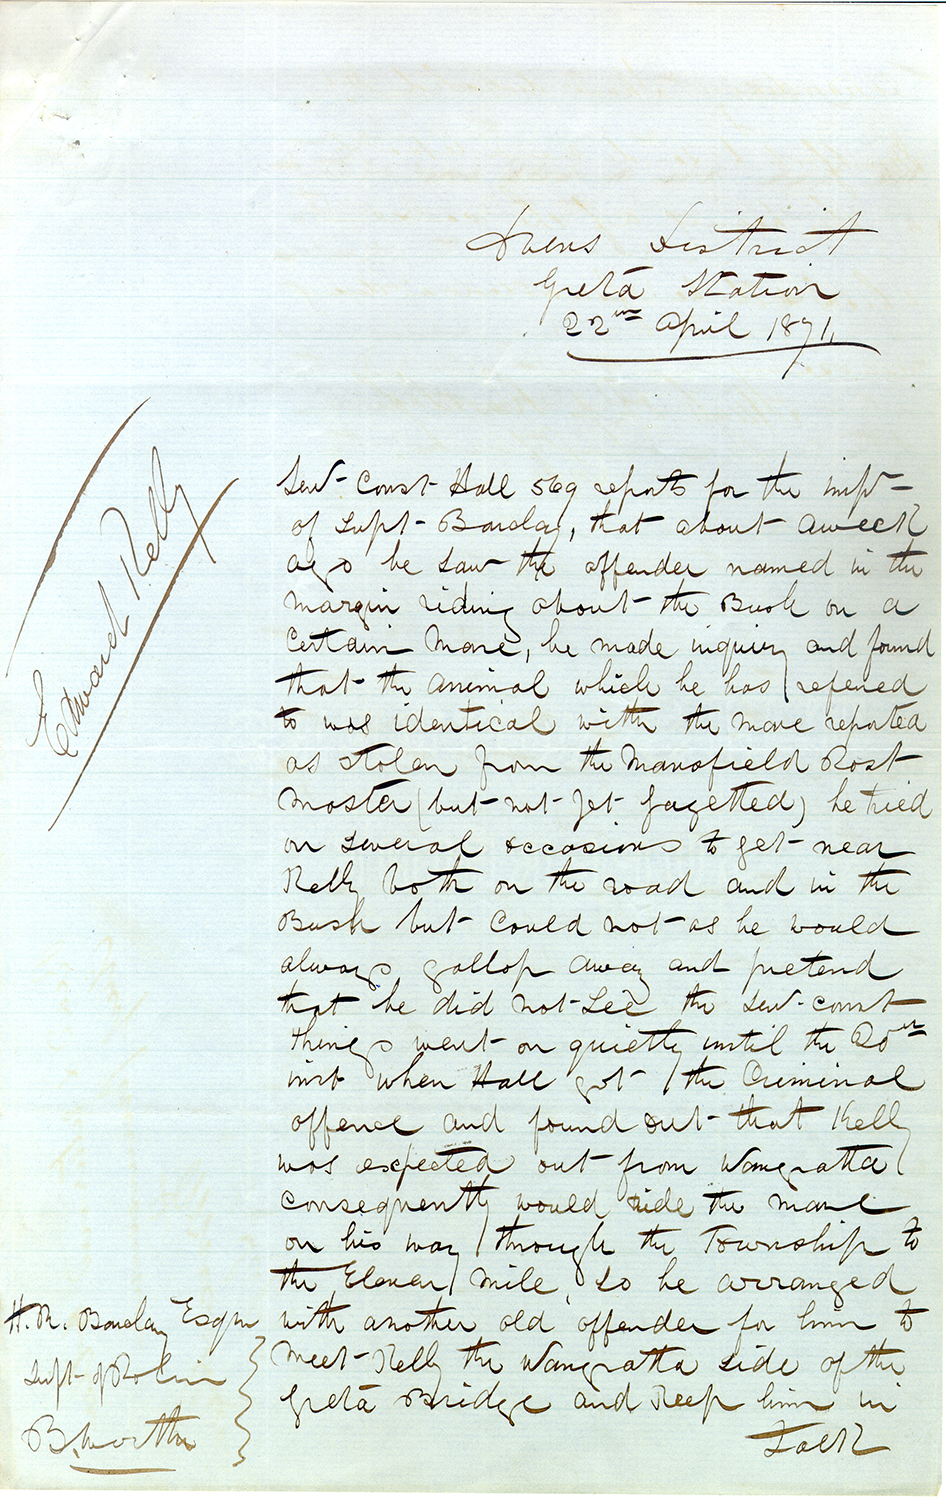 Ovens District
Greta Station
22nd April 1871,
Edward Kelly
Sen- Const Hall 569 reports for the infn-
of Supt- Barclay, that about a week
ago he saw the offender named in the
margin riding about the Bush on a
Certain Mare, he made inquiry and found
that the animal which he has refered
to was identical with the mare reported
as stolen from the Mansfield Post
Master (but not yet gazetted) he tried
on several occasions to get near
Kelly both on the road and in the
Bush but could not as he would
always gallop away and pretend
that he did not See the Sen-const
things went on quietly until the 20th
inst when Hall got the Criminal
offence and found out that Kelly
was expected out from Wangratta
consequently would ride the mare
on his way through the Township to
the Eleven Mile, so he arranged
with another old offender for him to
Meet Kelly the Wangratta side of the
Greta Bridge and Keep him in
Talk
H. R. Barclay Esqre
Supt of Police
B,worth